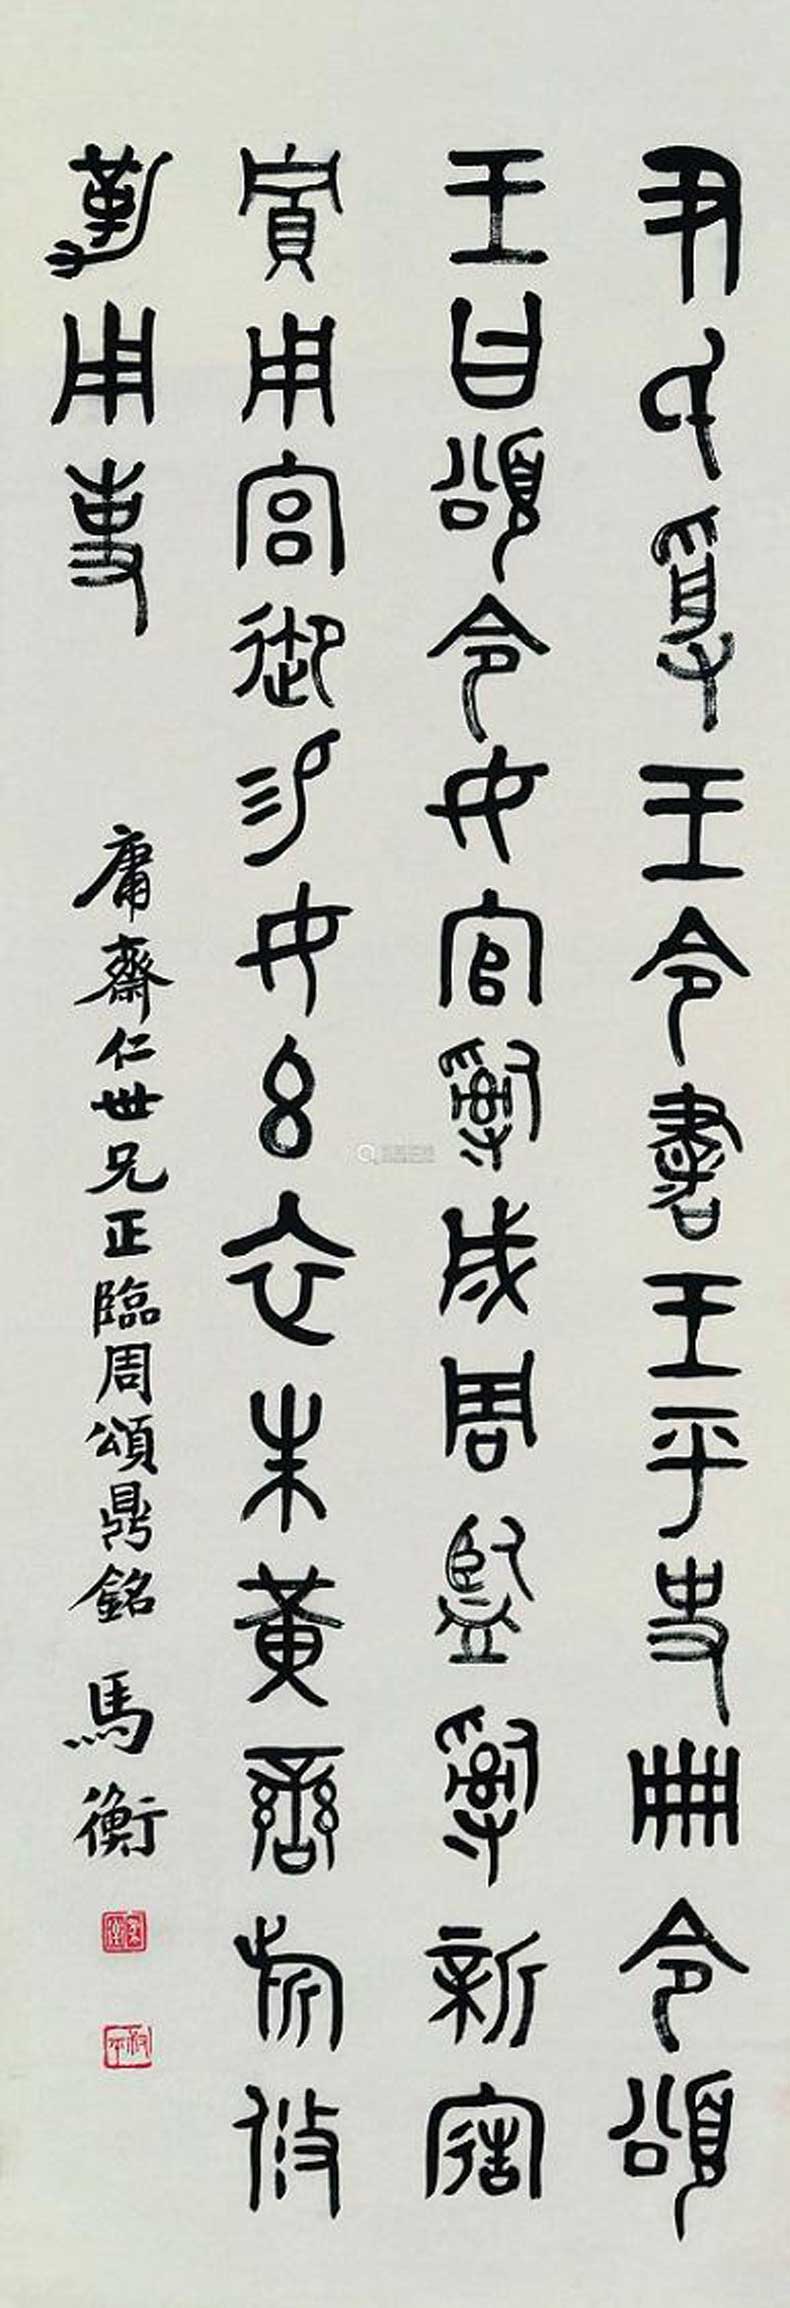 尹氏受王令書王乎史冊令頌
王曰頌令女官𤔲成周監𤔲新造
貯用宮御易女玄衣朱黃䜌旂攸
勒用事
庸齋仁世兄正臨周頌鼎銘 馬衡
叔平